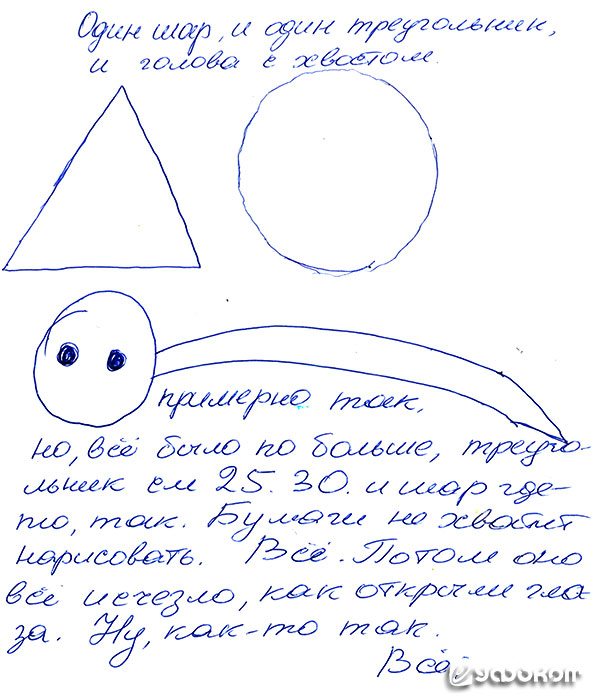 Один шар, и один треугольник,
и голова с хвостом.
примерно так,
но, всё было по больше, треуго-
льник см 25.30. и шар где-
то, так. Бумаги не хватит
нарисовать. Всё. Потом оно
всё исчезло, как открыли гла-
за. Ну, как-то так.
Всё.